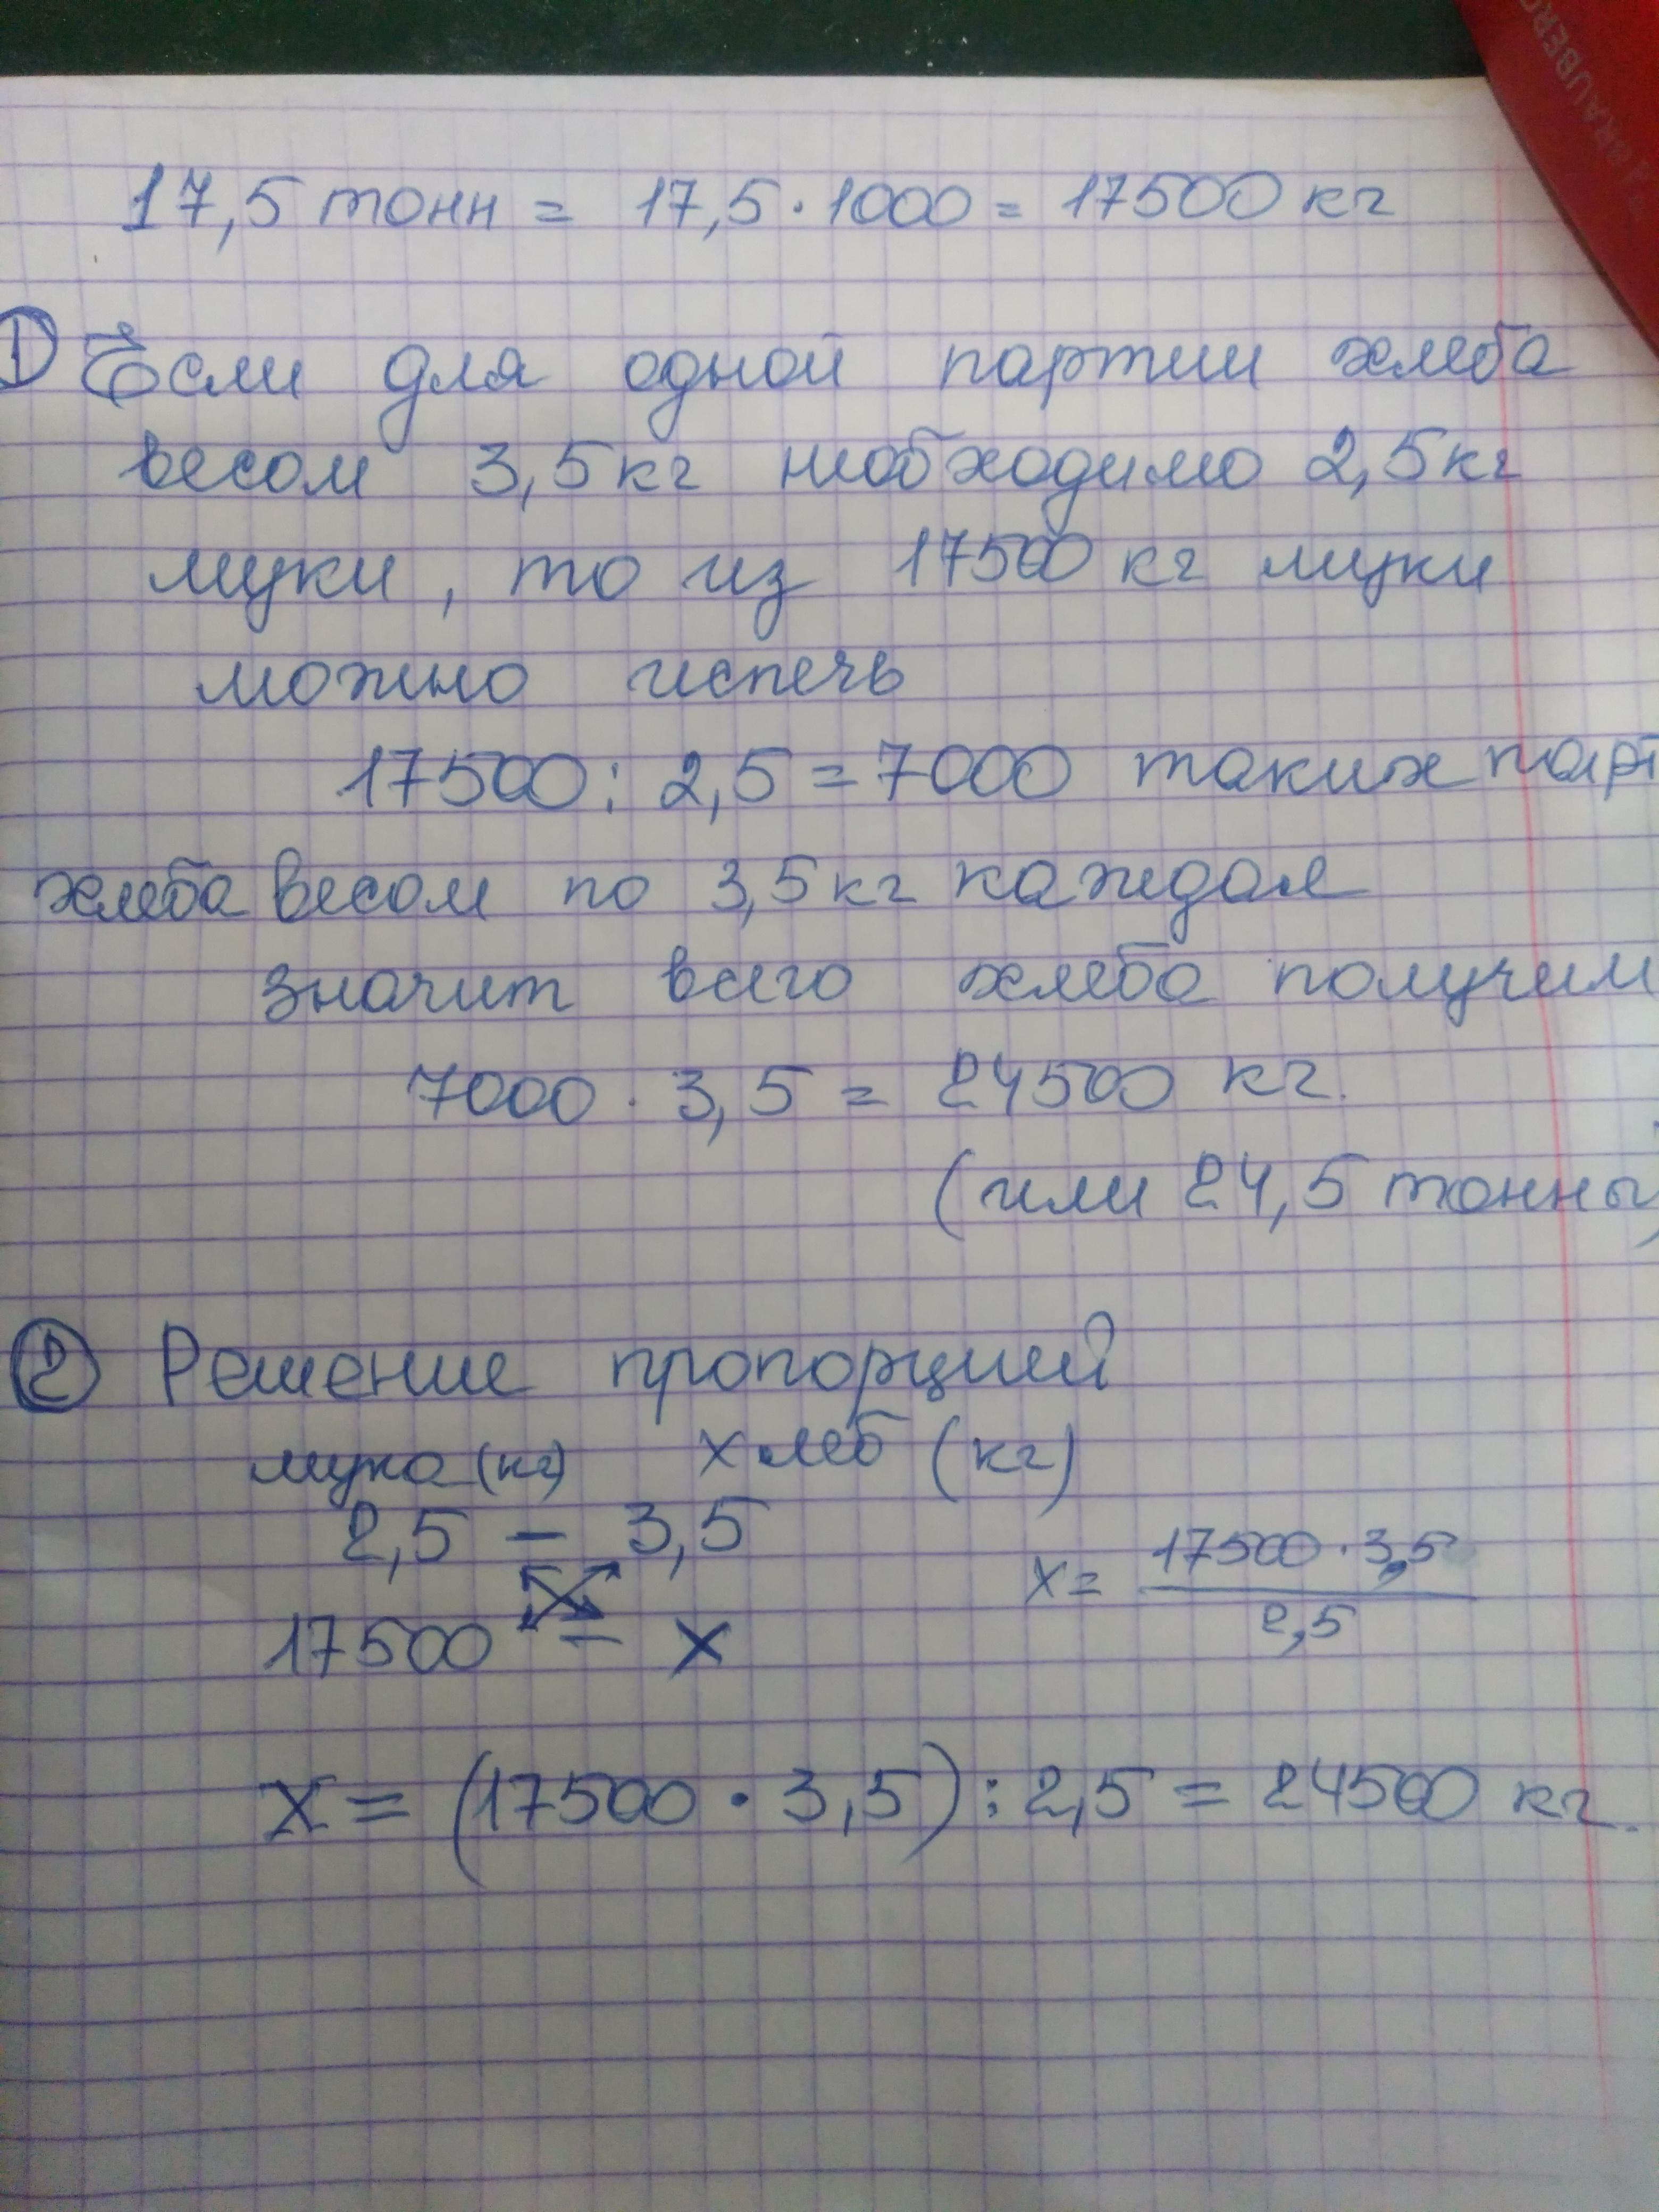 BRAUBERG
17,5 тонн = 17,5 · 1000 = 17500 кг
1 Если для одной партии хлеба
весом 3,5 кг необходимо 2,5 кг
муки, то из 17500 кг муки
можно испечь
17500 : 2,5 = 7000 таких парт
хлеба весом по 3,5 кг каждая
значит всего хлеба получим
7000 · 3,5 = 24500 кг.
(или 24,5 тонны)
2 Решение пропорцией
мука (кг) хлеб (кг)
2,5 – 3,5
x = 17500 · 3,5 / 2,5
17500 – x
x = (17500 · 3,5) : 2,5 = 24500 кг.